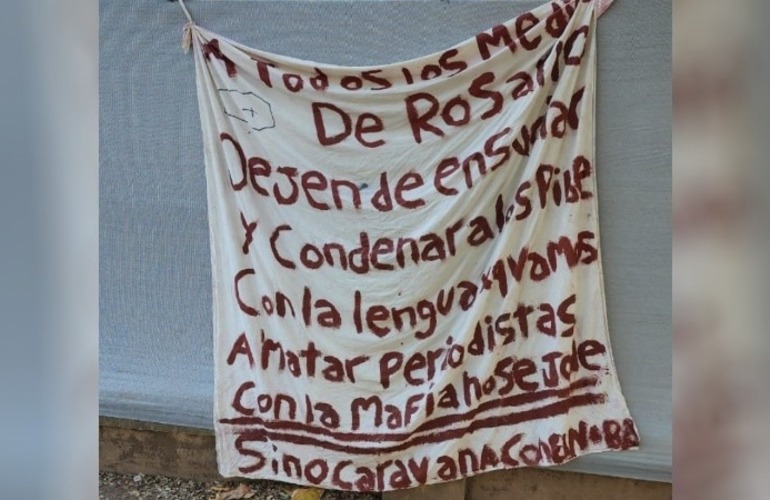 A Todos los Medi
De Rosario
Dejen de ensuciar
Y Condenar a los Pibe
Con la lengua xq vamos
A Matar Periodistas
Con la Mafia no se Jde
Sino caravana